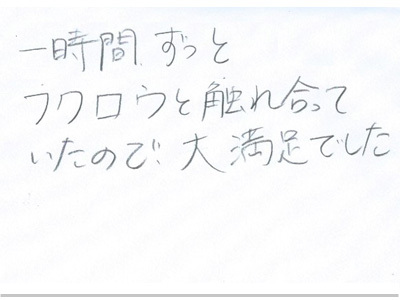 一時間、ずっと
フクロウと触れ合って
いたので、大満足でした